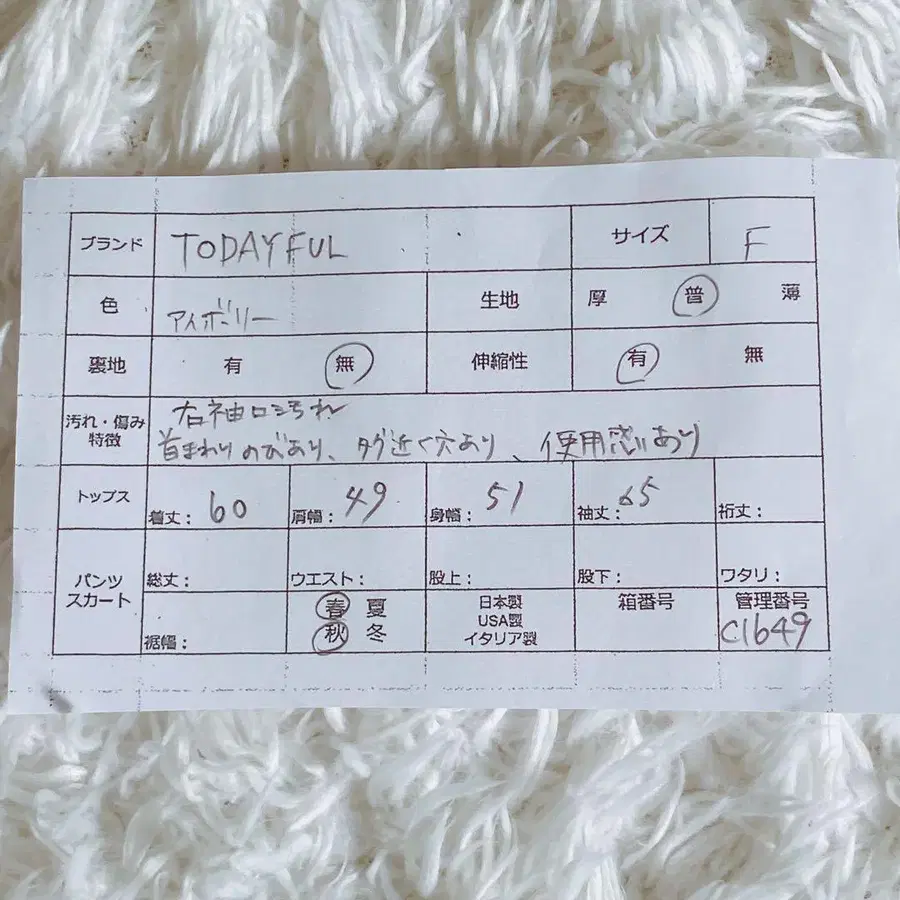 ブランド TODAYFUL サイズ F
色 アイボリー 生地 厚 普 薄
裏地 有 無 伸縮性 有 無
汚れ・傷み
特徴
右袖口汚れ
首まわりのびあり、タグ近く穴あり、使用感あり
トップス 着丈: 60 肩幅: 49 身幅: 51 袖丈: 65 裄丈:
パンツ
スカート
総丈: ウエスト: 股上: 股下: ワタリ:
裾幅:
春 夏
秋 冬
日本製
USA製
イタリア製
箱番号
管理番号
C1649